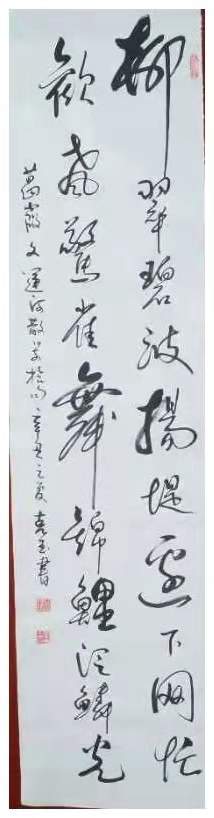 柳翠碧波揚堤邊下網忙
歡驚雀舞錦鯉泛鱗光
霞文運河散辛丑之夏玉書